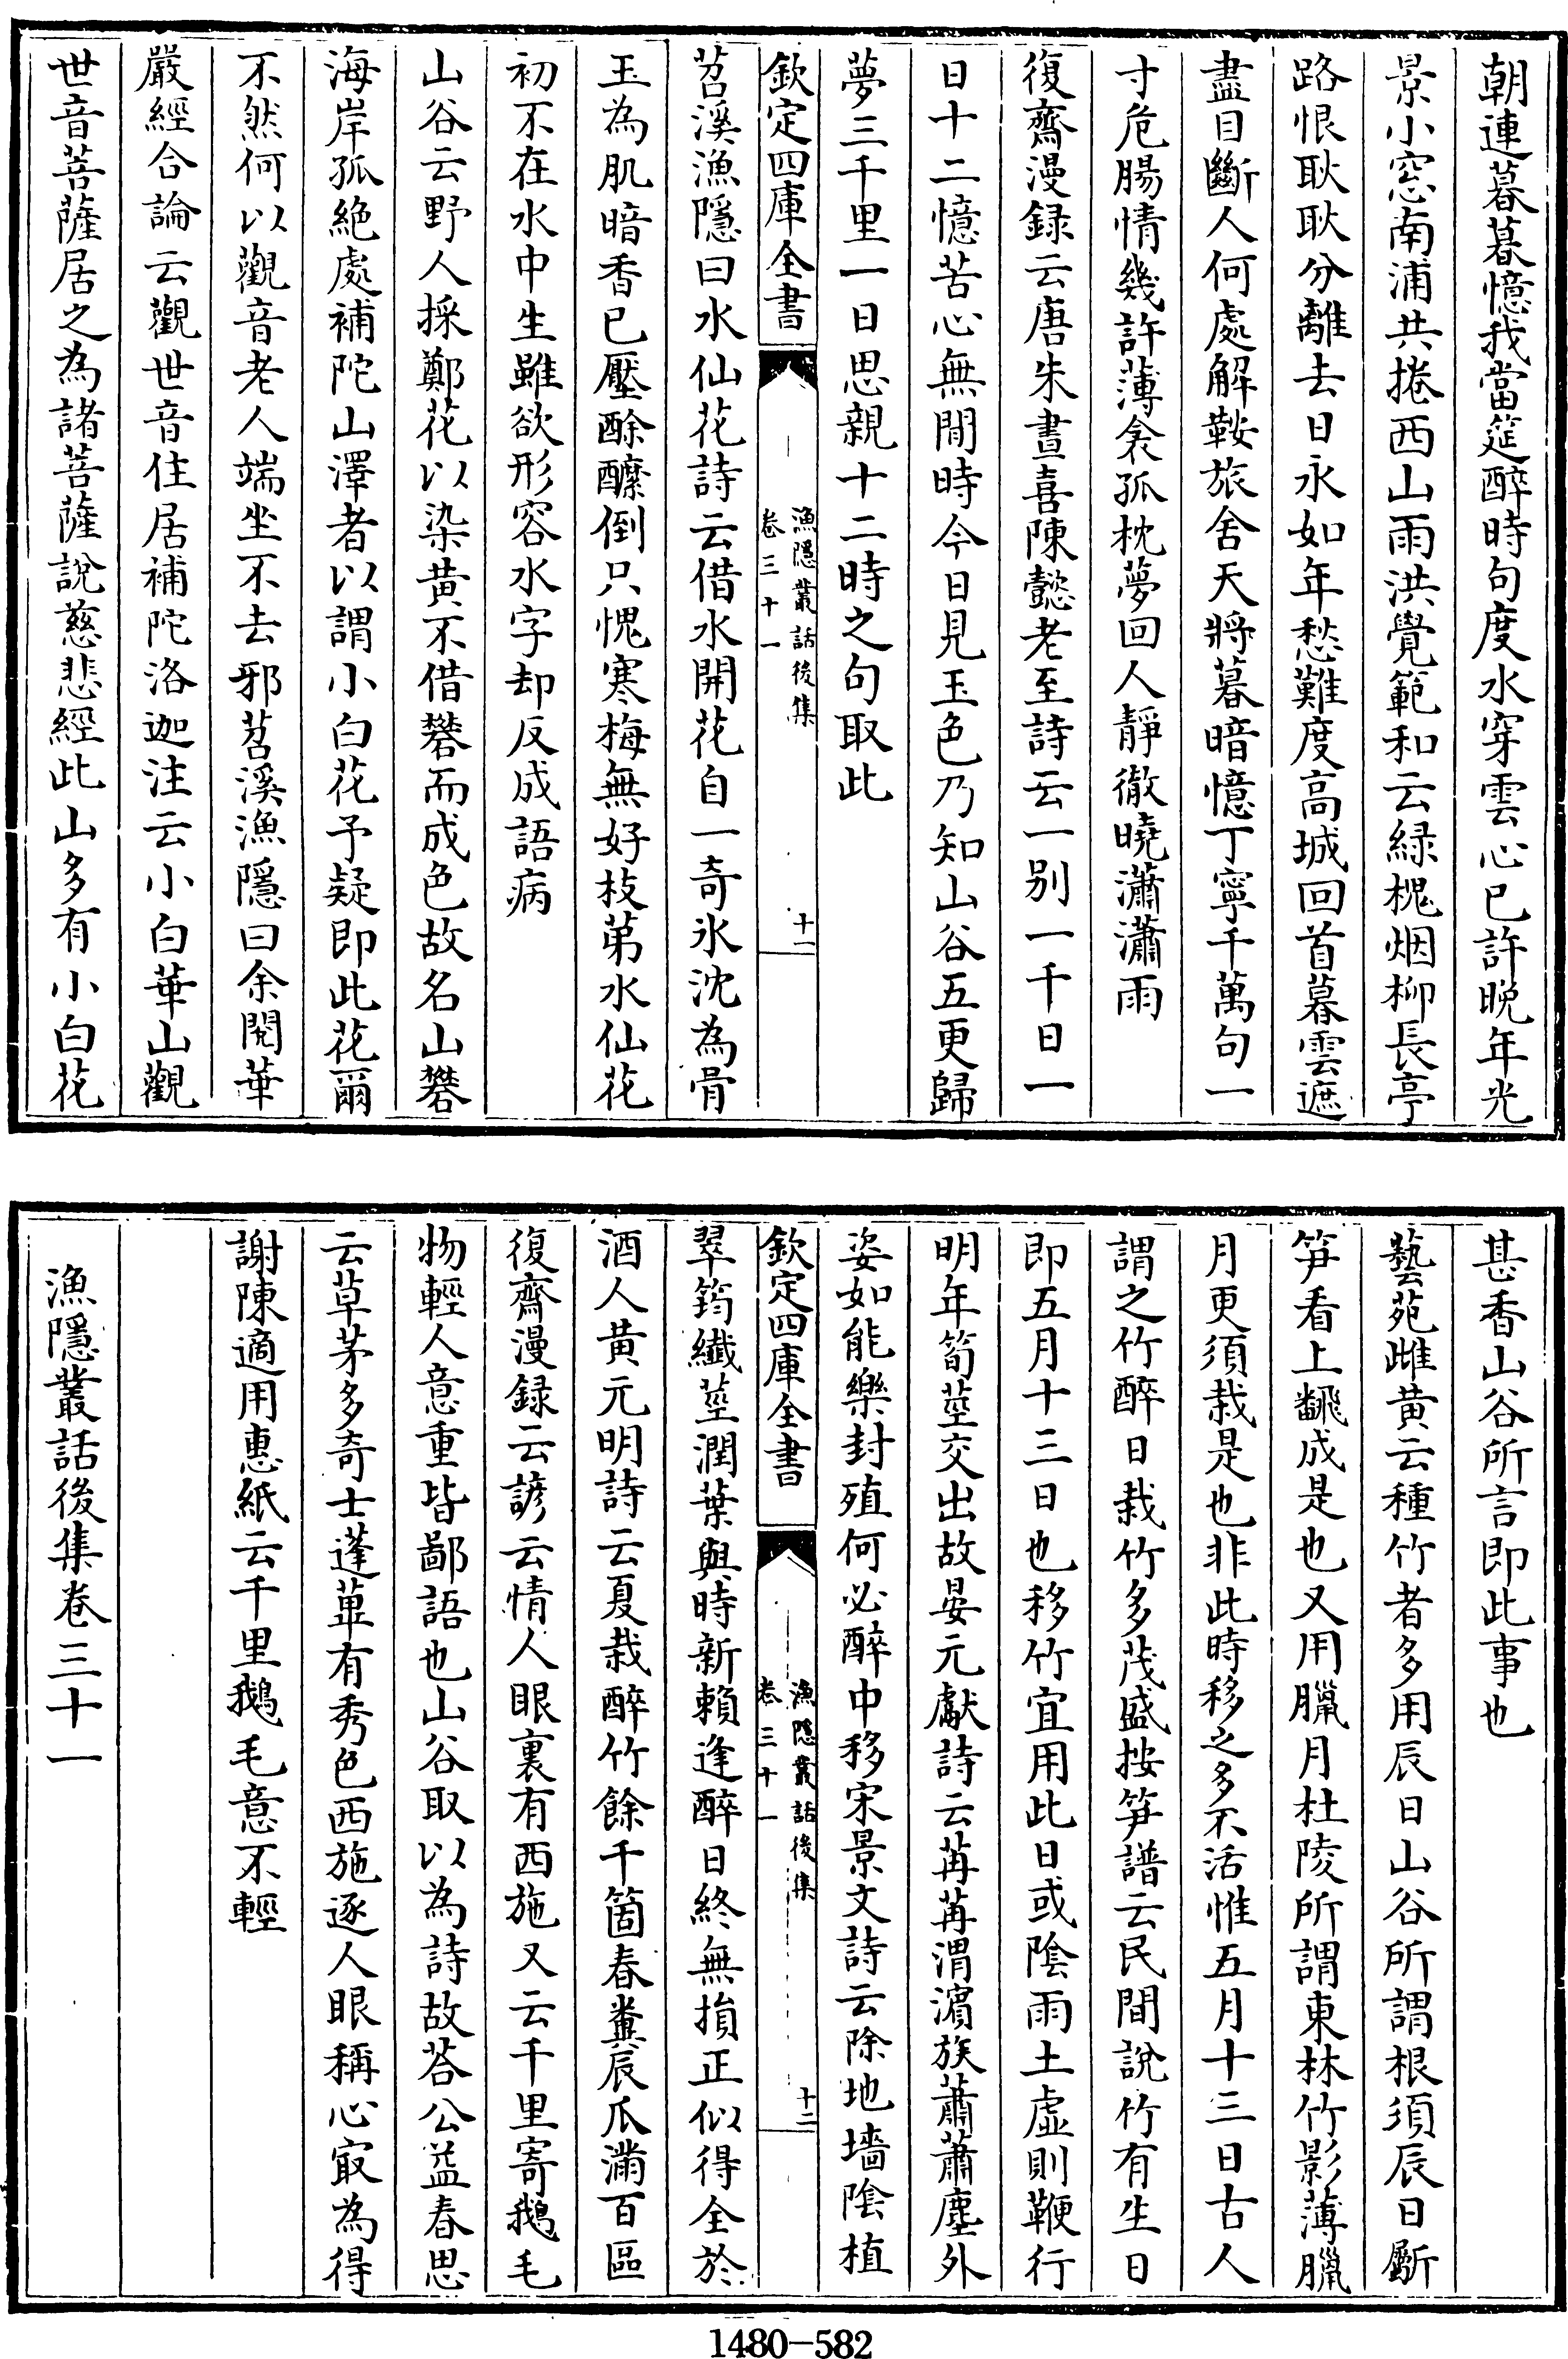 朝連暮暮憶我當筵醉時句度水穿雲心已許晚年光
景小窓南浦共捲西山雨洪覺範和云緑槐烟柳長亭
路恨耿耿分離去日永如年愁難度高城回首暮雲遮
盡目斷人何處解鞍旅舍天將暮暗憶丁寧千萬句一
寸危腸情幾許薄衾孤枕夢回人靜徹曉瀟瀟雨
復齋漫録云唐朱晝喜陳懿老至詩云一别一千日一
日十二憶苦心無閒時今日見玉色乃知山谷五更歸
夢三千里一日思親十二時之句取此
欽定四庫全書
漁隱叢話後集
卷三十一
十一
苕溪漁隱曰水仙花詩云借水開花自一奇氷沈為骨
玉為肌暗香已壓酴醿倒只愧寒梅無好枝苐水仙花
初不在水中生雖欲形容水字却反成語病
山谷云野人採鄭花以染黄不借礬而成色故名山礬
海岸孤絶處補陀山澤者以謂小白花予疑即此花爾
不然何以觀音老人端坐不去邪苕溪漁隱曰余閱華
嚴經合論云觀世音住居補陀洛迦注云小白華山觀
世音菩薩居之為諸菩薩說慈悲經此山多有小白花
甚香山谷所言即此事也
藝苑雌黄云種竹者多用辰日山谷所謂根須辰日斸
笋看上飜成是也又用臘月杜陵所謂東林竹影薄臘
月更須栽是也非此時移之多不活惟五月十三日古人
謂之竹醉日栽竹多茂盛按笋譜云民間說竹有生日
即五月十三日也移竹宜用此日或陰雨土虚則鞭行
明年筍莖交出故晏元獻詩云苒苒渭濵族蕭蕭塵外
姿如能樂封殖何必醉中移宋景文詩云除地墻陰植
欽定四庫全書
漁隱叢話後集
卷三十一
十二
翠筠纎莖潤葉與時新賴逢醉日終無損正似得全於
酒人黄元明詩云夏栽醉竹餘千箇春糞辰瓜滿百區
復齋漫録云諺云情人眼裏有西施又云千里寄鵝毛
物輕人意重皆鄙語也山谷取以為詩故荅公益春思
云草茅多奇士蓬蓽有秀色西施逐人眼稱心㝡為得
謝陳適用惠紙云千里鵝毛意不輕
漁隱叢話後集卷三十一
1480-582